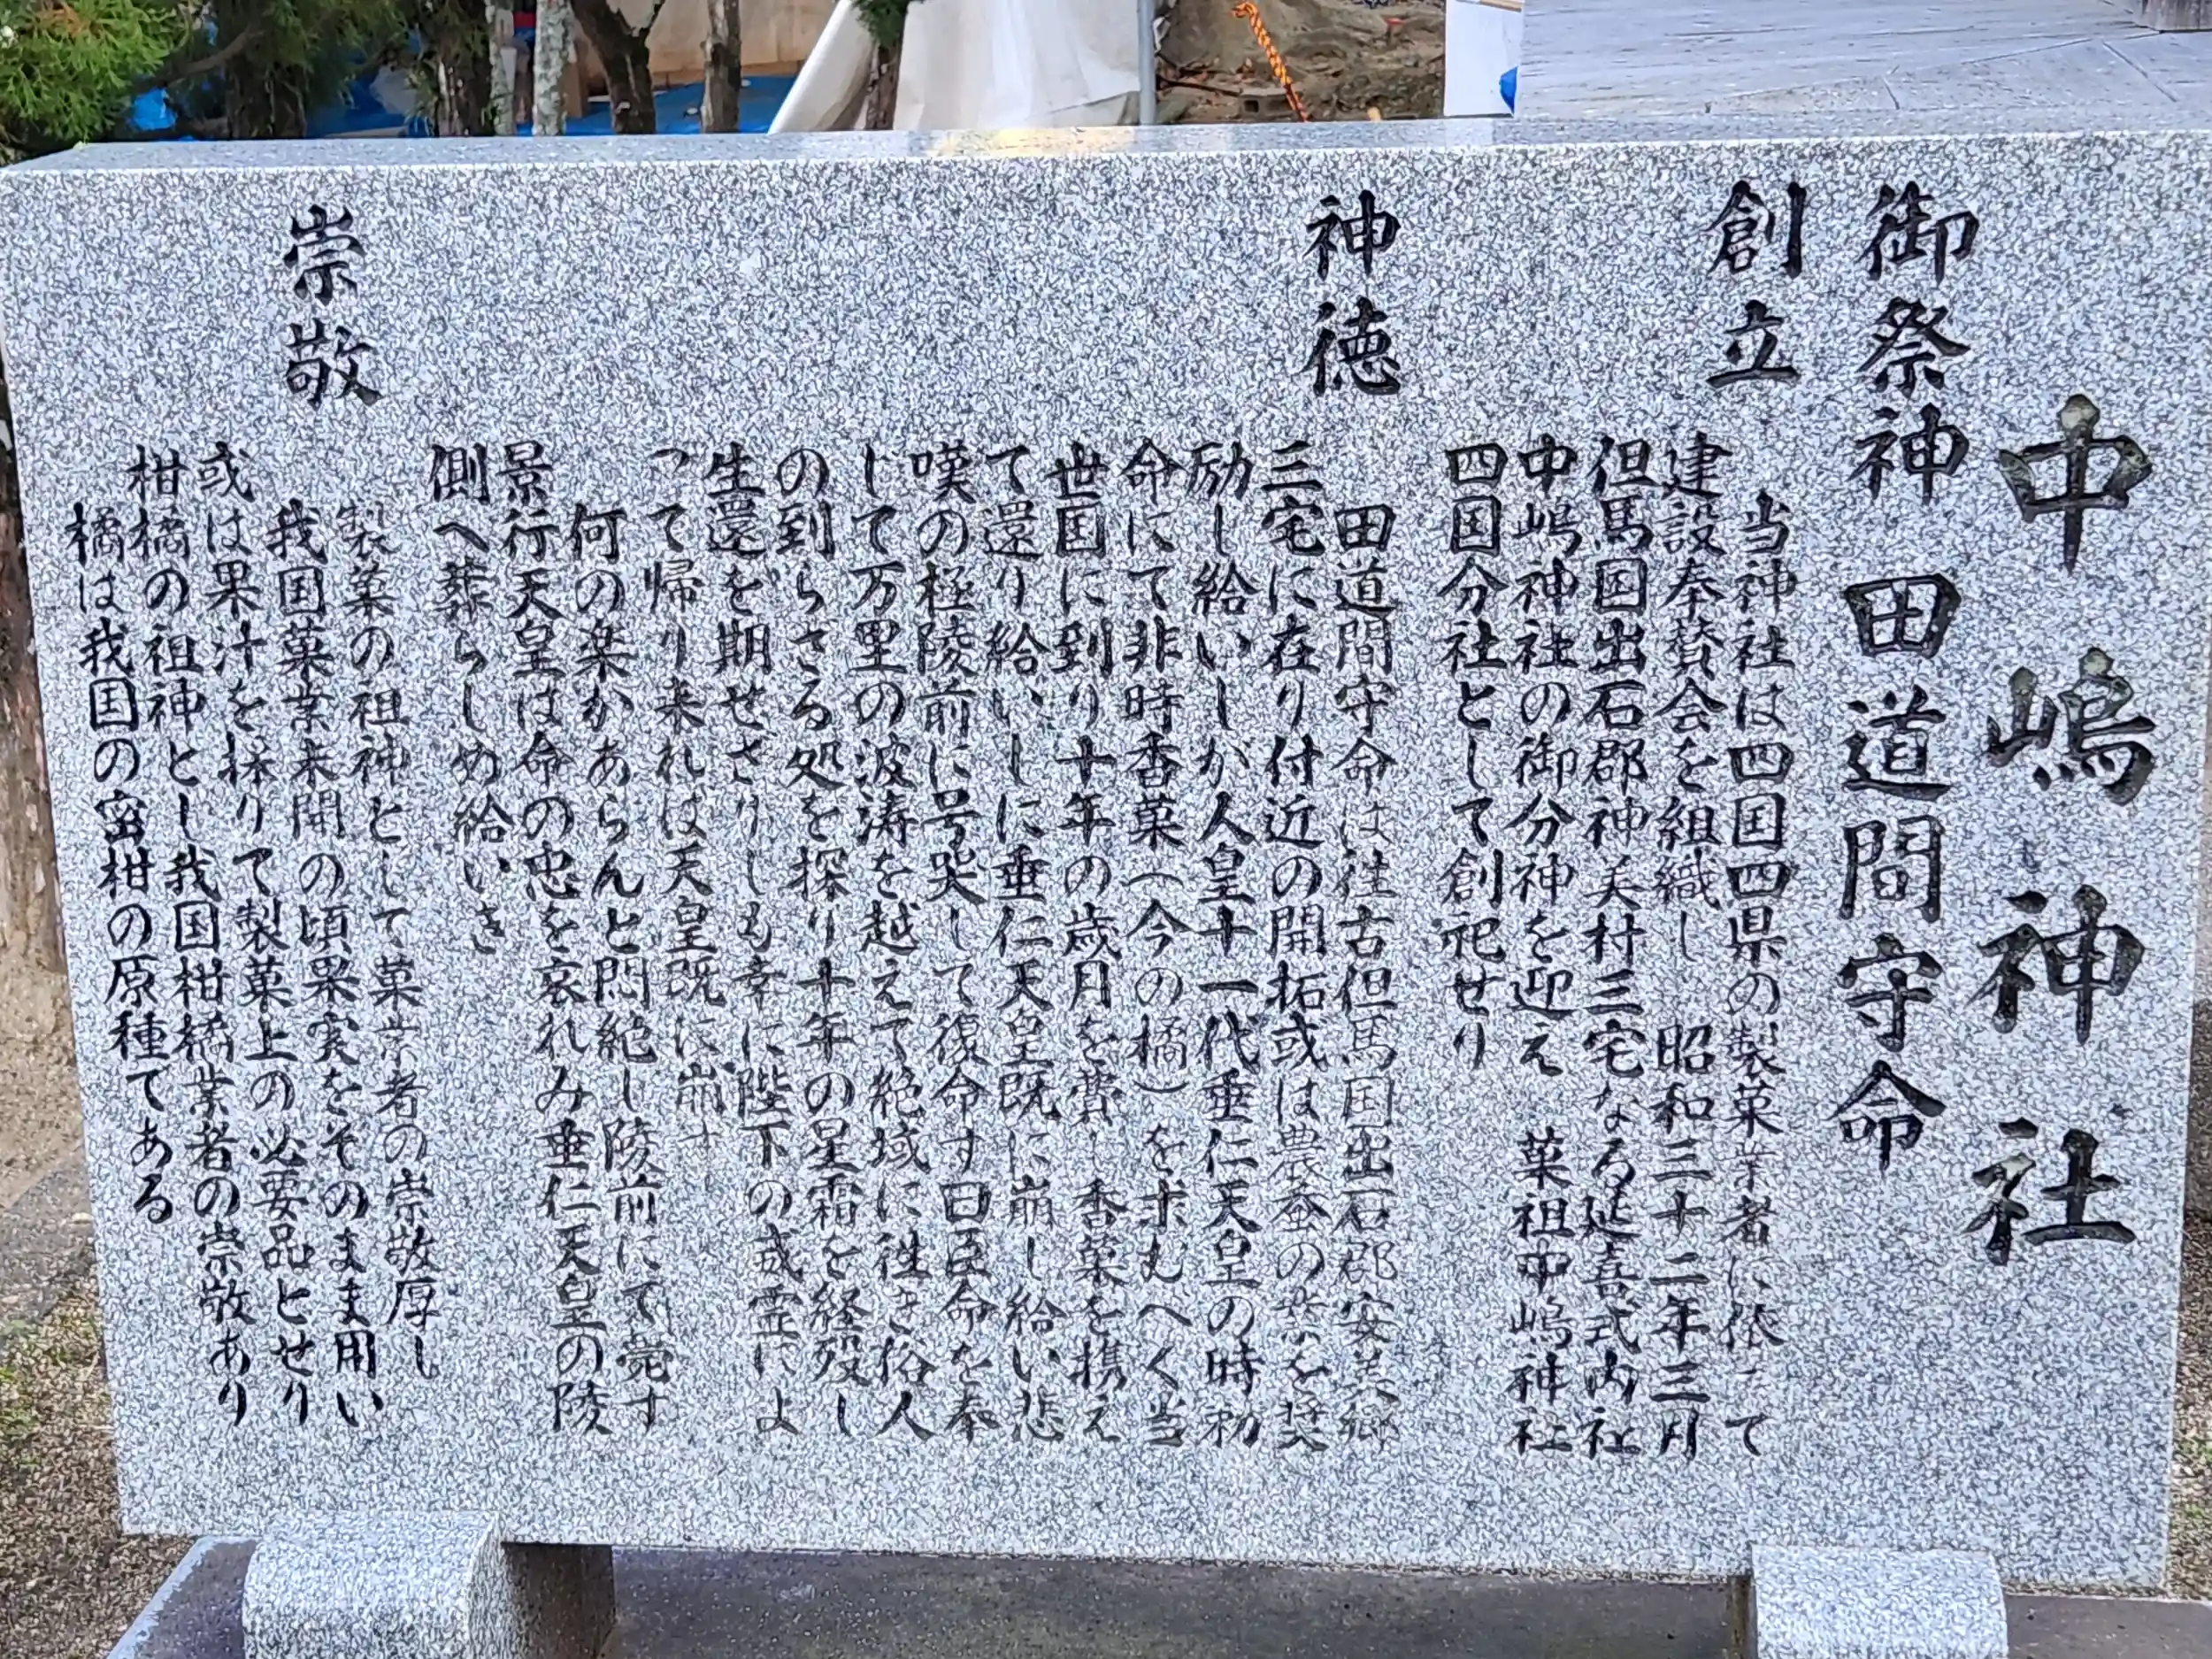 中嶋神社
御祭神 田道間守命
創立
当神社は四国四県の製菓業者に依って
建設奉賛会を組織し 昭和三十二年三月
但馬国出石郡神美村三宅なる延喜式内社
中嶋神社の御分神を迎え 菓祖中嶋神社
四国分社として創祀せり
神徳
田道間守命は往古但馬国出石郡安美郷
三宅に在り付近の開拓或は農蚕の業を奨
励し給いしが人皇十一代垂仁天皇の時勅
命にて非時香菓(今の橘)を求むへく当
世国に到り十年の歳月を費し香菓を携え
て還り給いしに垂仁天皇既に崩し給い悲
嘆の極陵前に号哭して復命す曰臣命を奉
じて万里の波涛を越えて絶域に往き俗人
の到らざる処を探り十年の星霜を経歿し
生還を期せざりしも幸に陛下の威霊によ
って帰り来れは天皇既に崩す
何の楽かあらんと悶絶し陵前にて薨す
景行天皇は命の忠を哀れみ垂仁天皇の陵
側へ葬らしめ給いき
崇敬
製菓の祖神として菓業者の崇敬厚し
我国菓業未開の頃果実をそのまま用い
或は果汁を採りて製菓上の必要品とせり
柑橘の祖神とし我国柑橘業者の崇敬あり
橘は我国の蜜柑の原種てある